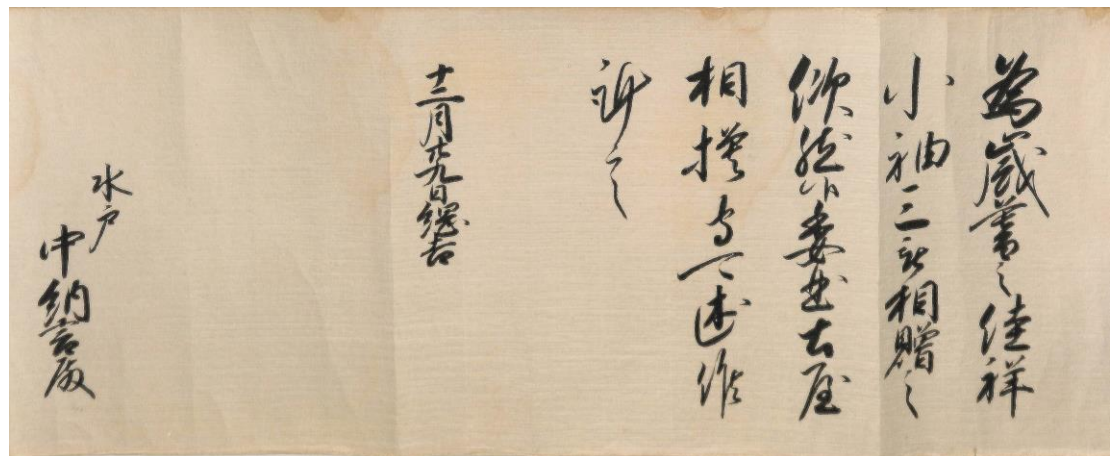 為歳暮之佳祥
小袖三被相贈之
歓然候委曲土屋
相摸守可述候
謹言
十二月廿九日綱吉
水戸
中納言殿